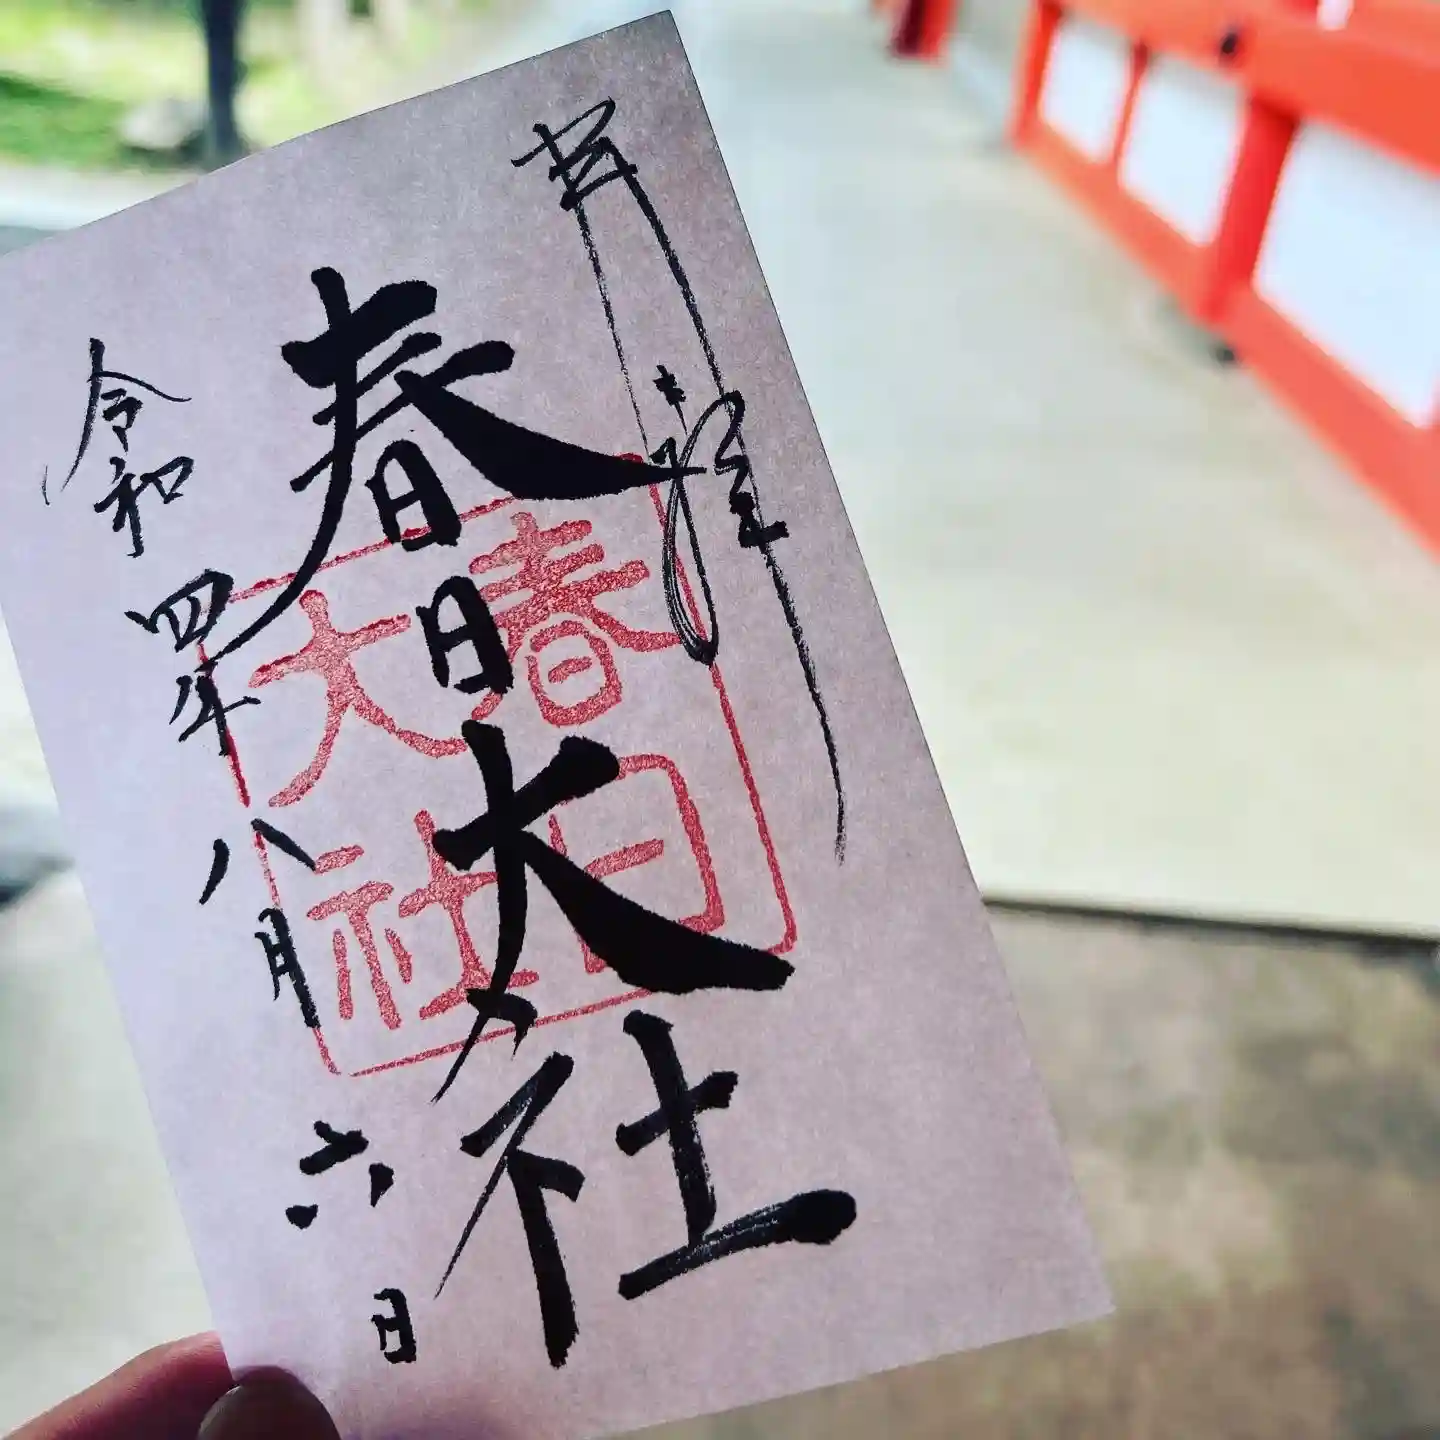 奉拝
春日大社
春日
大社
令和四年八月六日